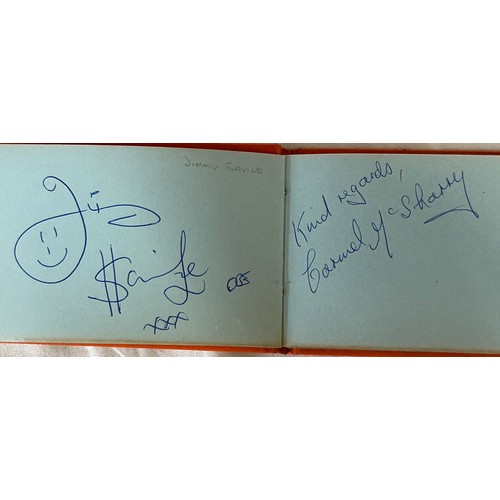 Jimmy Savile
Jim
Savile
OBE
xxx
Kind regards,
Carmel McSharry